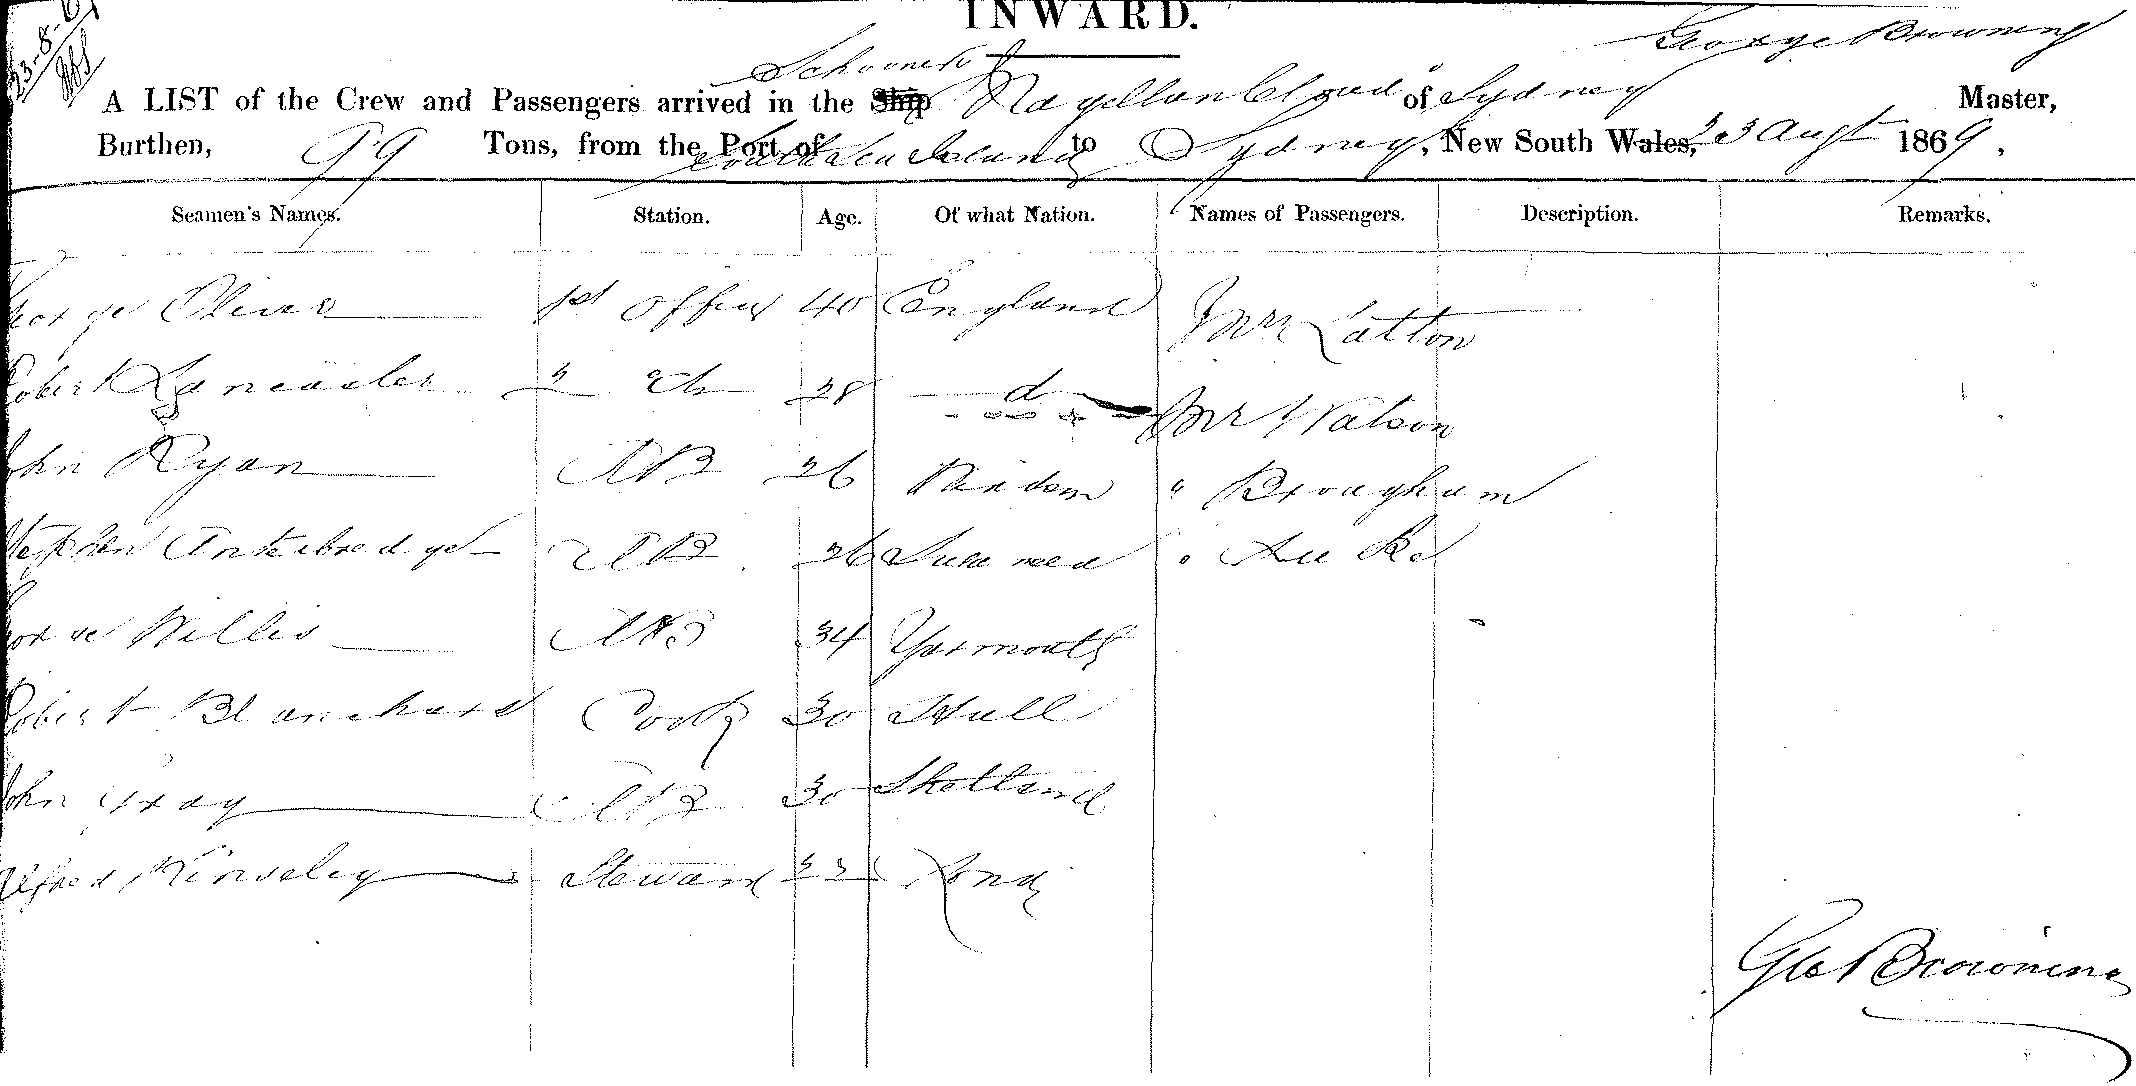 INWARD.
23-8-69
George Browning
Schooner
A LIST of the Crew and Passengers arrived in the Ship Magellan Cloud of Sydney Master,
Burthen, 99 Tons, from the Port of South Sea Island to Sydney, New South Wales, 23 Augt 1869.
Seamen's Names. Station. Age. Of what Nation. Names of Passengers. Description. Remarks.
George Oliver 1st Officer 40 England Mrs Latton
Robert Lancaster 2 do 28 do Mr Watson
John Ryan AB 26 " Brougham
Stephen AB 26
George Willis AB 34 Yarmouth
Robert Blanchard Cook 30 Hull
John Gray AB 30 Shetland
Alfred Kinseley Steward 22 Lond
Geo Browning